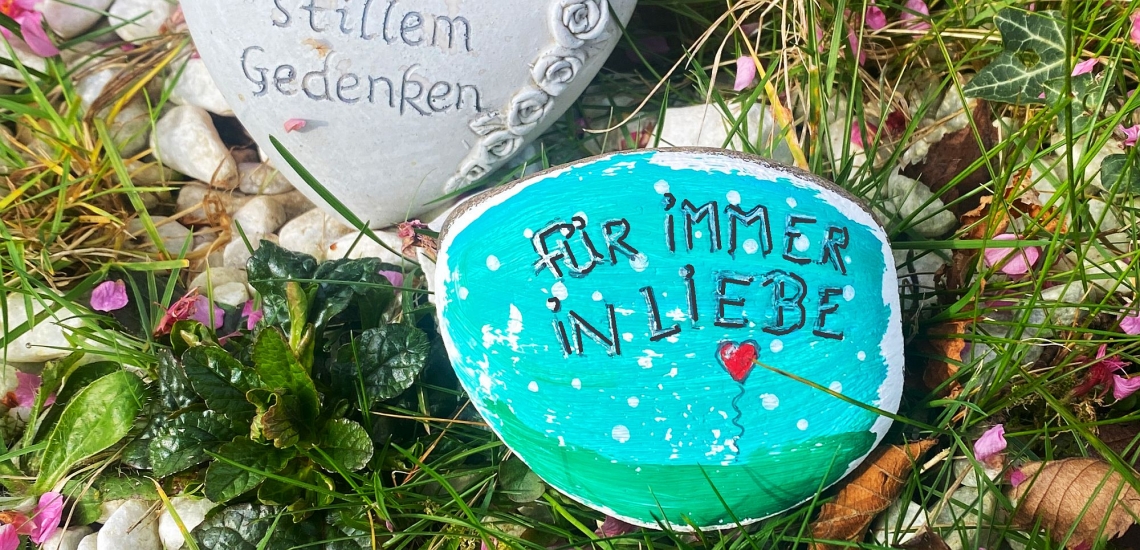 stillem
Gedenken
FÜR iMMER
iN LiEBE